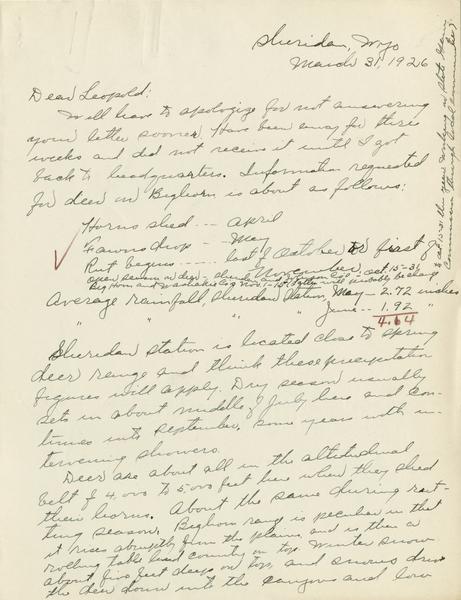 Sheridan, Wyo
March 31, 1926
Dear Leopold:
Will have to apologize for not answering
your letter sooner. Have been away for three
weeks and did not receive it until I got
back to headquarters. Information requested
for deer in Bighorn is about as follows:
Horns shed --- April
Fawns drop - May
Rut begins ---- last of October or first of
November.
Open season on deer - Sheridan and Johnson Co's - Oct. 15-31
Big Horn and Washakie Co's Nov. 1-15
Average rainfall, Sheridan Station, May - 2.72 inches
" " " " June - 1.92
4.64
Sheridan Station is located close to spring
deer range and think these precipitation
figures will apply. Dry season usually
sets in about middle of July here and con-
tinues into September, some years with in-
tervening showers.
Deer are about all in the altitudinal
belt of 4,000 to 5,000 feet here when they shed
their horns. About the same during rut-
ting season. Bighorn range is peculiar in that
it rises abruptly from the plains, and is then a
rolling table land country on top. Winter snow
about five feet deep on top, and snows drive
the deer down into the canyons and low
to Oct. 15-31 this year
Commission through